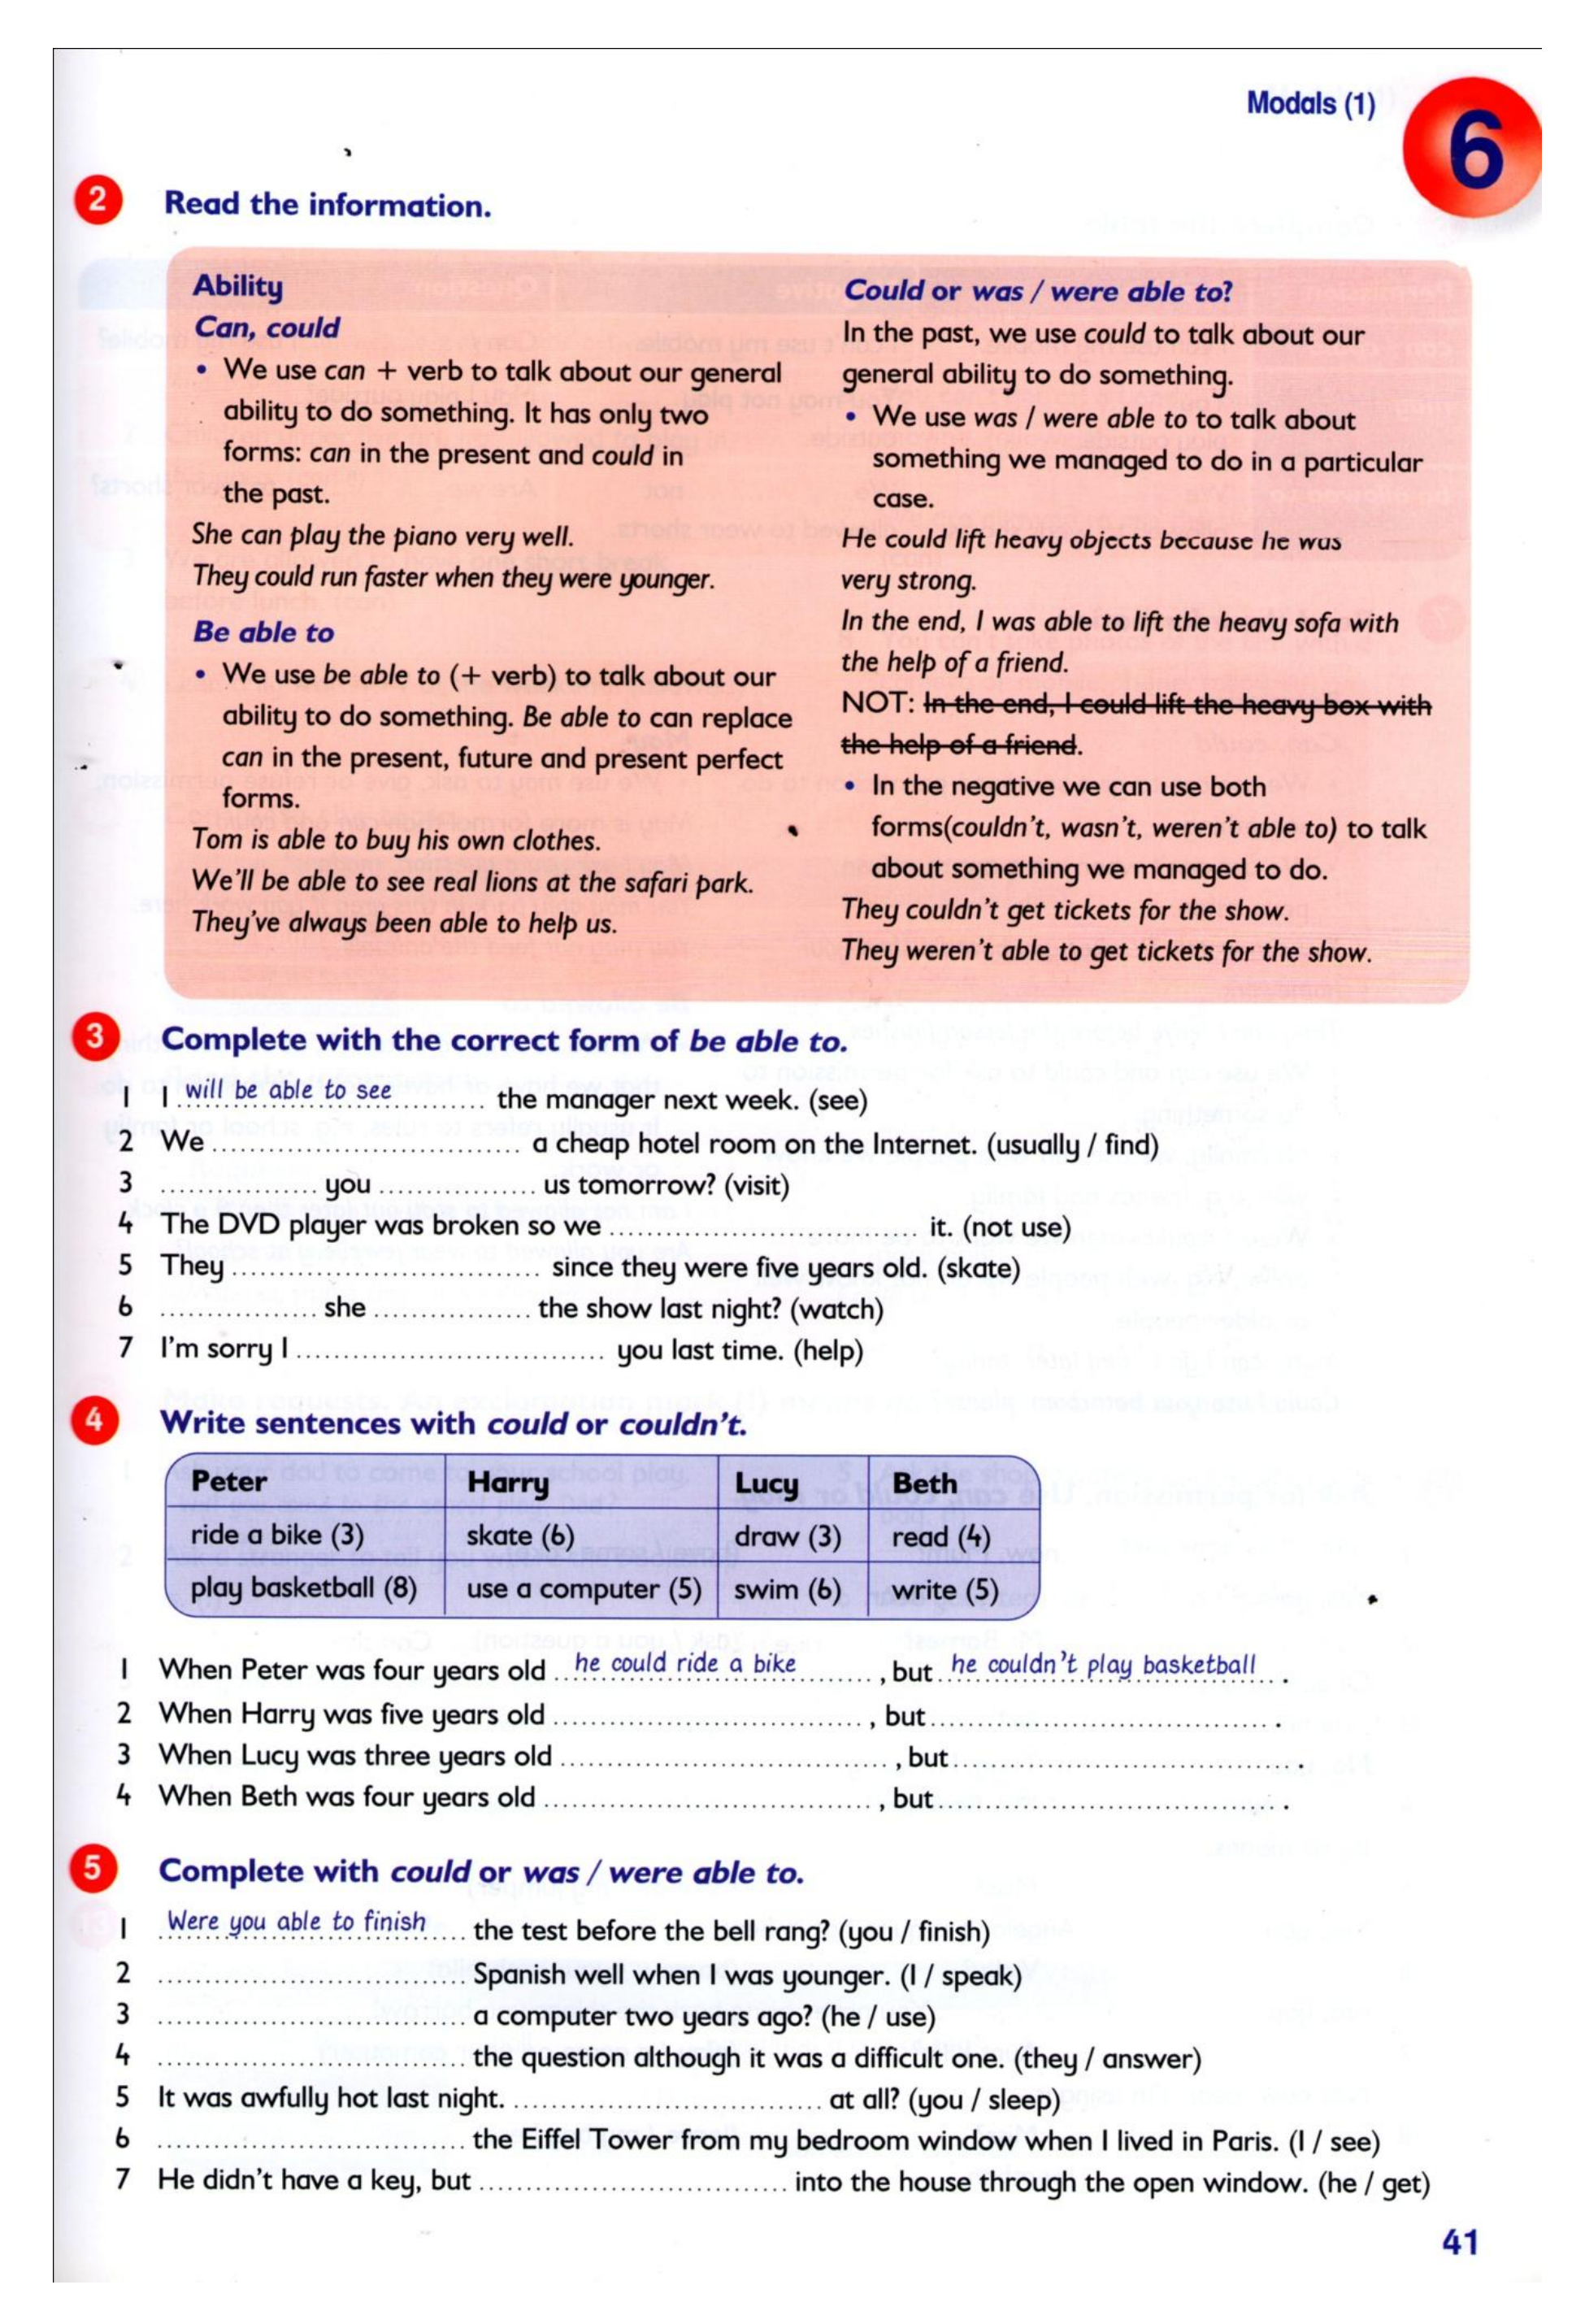 Modals (1)
6
2 Read the information.
Ability
Can, could
• We use can + verb to talk about our general
ability to do something. It has only two
forms: can in the present and could in
the past.
She can play the piano very well.
They could run faster when they were younger.
Be able to
• We use be able to (+ verb) to talk about our
ability to do something. Be able to can replace
can in the present, future and present perfect
forms.
Tom is able to buy his own clothes.
We'll be able to see real lions at the safari park.
They've always been able to help us.
Could or was / were able to?
In the past, we use could to talk about our
general ability to do something.
• We use was / were able to to talk about
something we managed to do in a particular
case.
He could lift heavy objects because he was
very strong.
In the end, I was able to lift the heavy sofa with
the help of a friend.
NOT: In the end, I could lift the heavy box with
the help of a friend.
• In the negative we can use both
forms(couldn't, wasn't, weren't able to) to talk
about something we managed to do.
They couldn't get tickets for the show.
They weren't able to get tickets for the show.
3 Complete with the correct form of be able to.
1 I will be able to see the manager next week. (see)
2 We .............................. a cheap hotel room on the Internet. (usually / find)
3 ............... you ............... us tomorrow? (visit)
4 The DVD player was broken so we .............................. it. (not use)
5 They .............................. since they were five years old. (skate)
6 ............... she ............... the show last night? (watch)
7 I'm sorry I .............................. you last time. (help)
4 Write sentences with could or couldn't.
Peter Harry Lucy Beth
ride a bike (3) skate (6) draw (3) read (4)
play basketball (8) use a computer (5) swim (6) write (5)
1 When Peter was four years old he could ride a bike , but he couldn't play basketball .
2 When Harry was five years old .............................. , but .............................. .
3 When Lucy was three years old .............................. , but .............................. .
4 When Beth was four years old .............................. , but .............................. .
5 Complete with could or was / were able to.
1 Were you able to finish the test before the bell rang? (you / finish)
2 .............................. Spanish well when I was younger. (I / speak)
3 .............................. a computer two years ago? (he / use)
4 .............................. the question although it was a difficult one. (they / answer)
5 It was awfully hot last night. .............................. at all? (you / sleep)
6 .............................. the Eiffel Tower from my bedroom window when I lived in Paris. (I / see)
7 He didn't have a key, but .............................. into the house through the open window. (he / get)
41